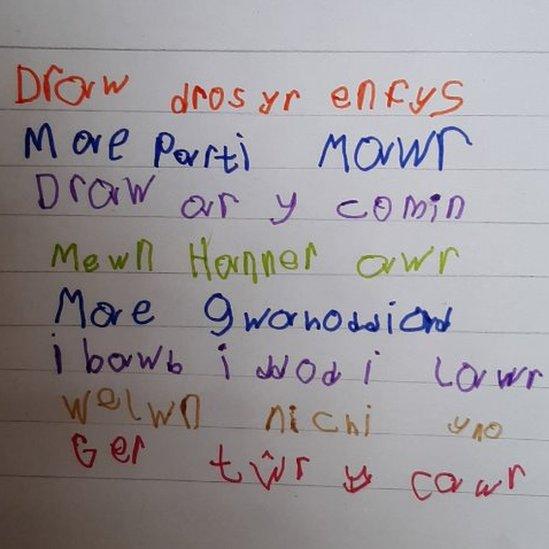 Draw dros yr enfys
Mae Parti Mawr
Draw ar y comin
Mewn Hanner awr
Mae gwahoddiad
i bawb i ddod i lawr
welwn ni chi yno
Ger tŵr y cawr